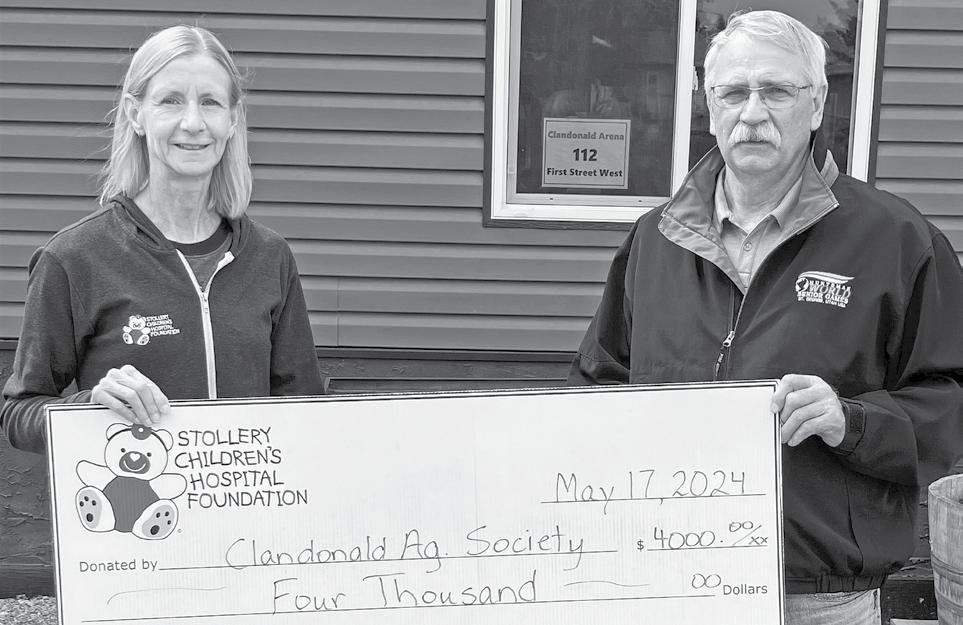 Clandonald Arena
112
First Street West
STOLLERY
CHILDREN'S
HOSPITAL
FOUNDATION
WORLD
SENIOR GAMES
ST. GEORGE, UTAH USA
STOLLERY
CHILDREN'S
HOSPITAL
FOUNDATION
May 17, 2024
Donated by Clandonald Ag. Society $ 4000.00/xx
Four Thousand 00 Dollars